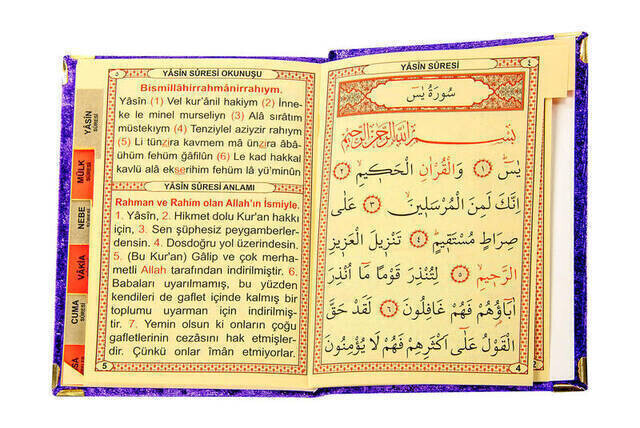 ٥ YÂSİN SÛRESİ OKUNUŞU
Bismillâhirrahmânirrahıym.
Yâsîn (1) Vel kur'ânil hakiym (2) İnne-
ke le minel murseliyn (3) Alâ sıratım
müstekıym (4) Tenziylel aziyzir rahıym
(5) Li tünzira kavmem mâ ünzira âbâ-
ühüm fehüm gâfilûn (6) Le kad hakkal
kavlü alâ ekserihim fehüm lâ yü'minûn
YÂSİN SÛRESİ ANLAMI
Rahman ve Rahim olan Allah'ın İsmiyle.
1. Yâsîn, 2. Hikmet dolu Kur'an hakkı
için, 3. Sen şüphesiz peygamberler-
densin. 4. Dosdoğru yol üzerindesin.
5. (Bu Kur'an) Gâlip ve çok merha-
metli Allah tarafından indirilmiştir. 6.
Babaları uyarılmamış, bu yüzden
kendileri de gaflet içinde kalmış bir
toplumu uyarman için indirilmiş-
tir. 7. Yemin olsun ki onların çoğu
gafletlerinin cezasını hak etmişler-
dir. Çünkü onlar îman etmiyorlar.
5
YÂSİN
SÛRESİ
MÜLK
SÛRESİ
NEBE
SÛRESİ
VÂKIA
SÛRESİ
CUMA
SÛRESİ
YÂSİN SÛRESİ ٤
سُورَةُ يٰسٓ
بِسْمِ اللّٰهِ الرَّحْمٰنِ الرَّحِيمِ
يٰسٓ ﴿١﴾ وَالْقُرْاٰنِ الْحَكِيمِ ﴿٢﴾
اِنَّكَ لَمِنَ الْمُرْسَلِينَ ﴿٣﴾ عَلٰى
صِرَاطٍ مُسْتَقِيمٍ ﴿٤﴾ تَنْزِيلَ الْعَزِيزِ
الرَّحِيمِ ﴿٥﴾ لِتُنْذِرَ قَوْمًا مَٓا اُنْذِرَ
اٰبَٓاؤُ۬هُمْ فَهُمْ غَافِلُونَ ﴿٦﴾ لَقَدْ حَقَّ
الْقَوْلُ عَلٰٓى اَكْثَرِهِمْ فَهُمْ لَا يُؤْمِنُونَ
4